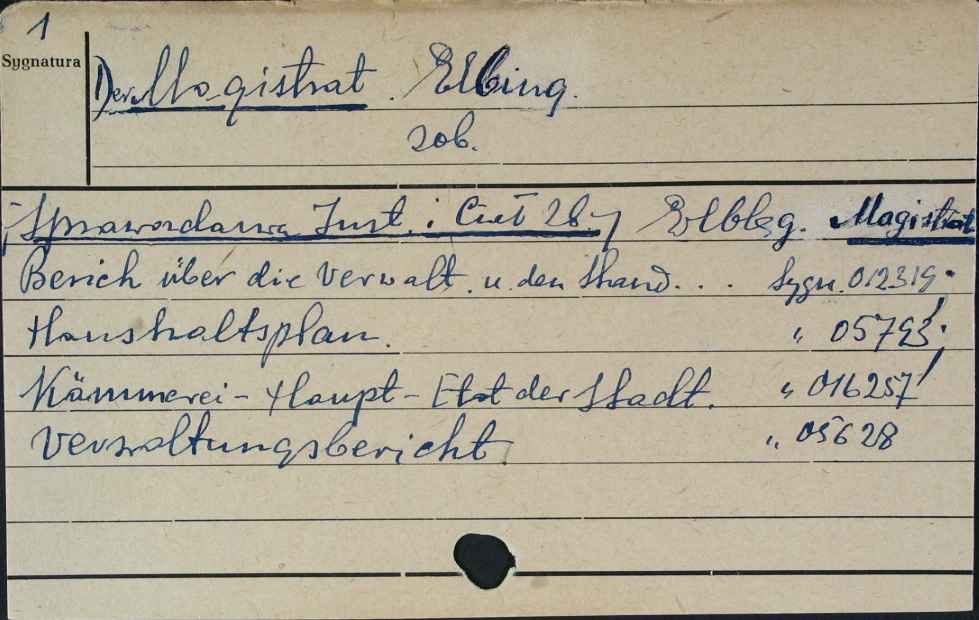 1
Sygnatura
Der Magistrat. Elbing.
zob.
Sprawozdania Inst. i Elbg. Magistrat
Berich über die Verwalt. u. den Stand... Sygn. 012319.
Haushaltsplan. „ 05793.
Kämmerei-Haupt-Etat der Stadt. „ 016257
Verwaltungsbericht. „ 05628